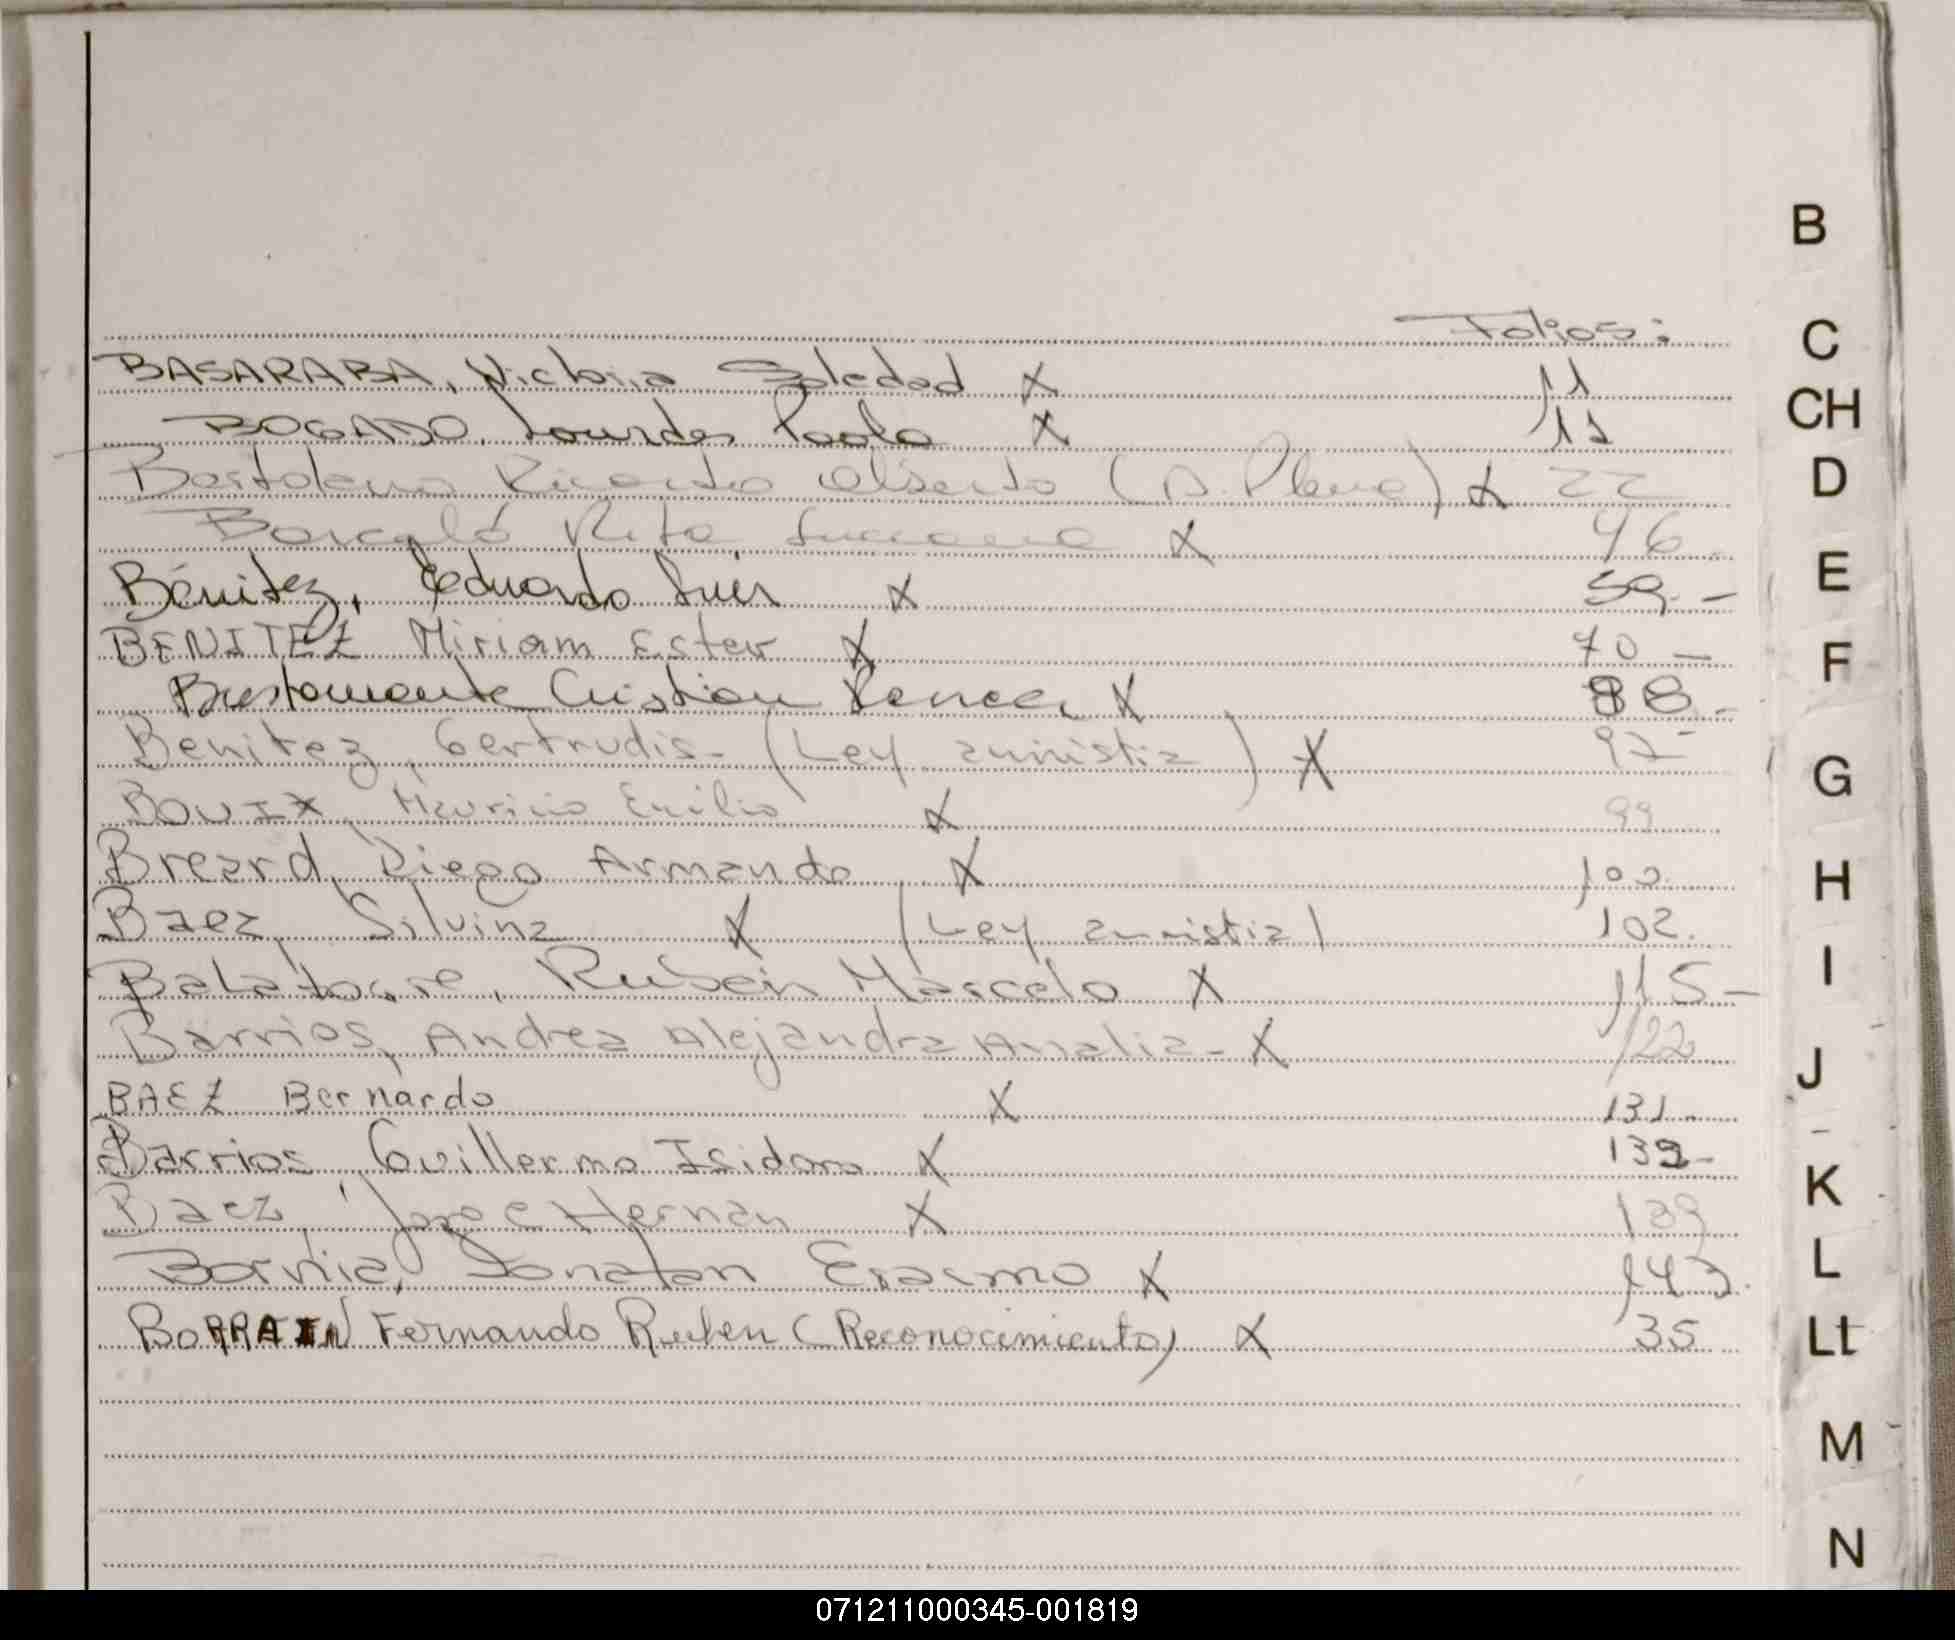 Folios:
BASARABA, Victoria Soledad X 11
BOGADO, Lourdes Paola X 11
Ricardo Alberto (A. Plena) X 22
Barceló Rita Luciana X 46
Bénitez, Eduardo Luis X 59.-
BENITEZ Miriam Ester X 70 -
Bustamante Cristian X 88.-
Benitez, Gertrudis- (Ley amnistia) X 97-
BOUIX, Mauricio Emilio X 99
Breard, Diego Armando X 100.
Baez, Silvina X (Ley amnistia) 102.
Rubén Marcelo X 115-
Barrios, Andrea Alejandra Analia- X 122
BAEZ Bernardo X 131.
Barrios, Guillermo Isidoro X 139-
Baez, Jorge Hernan X 139
Jonatan Erasmo X 143.
Fernando Ruben (Reconocimiento) X 35
B
C
CH
D
E
F
G
H
I
J
K
L
Ll
M
N
071211000345-001819